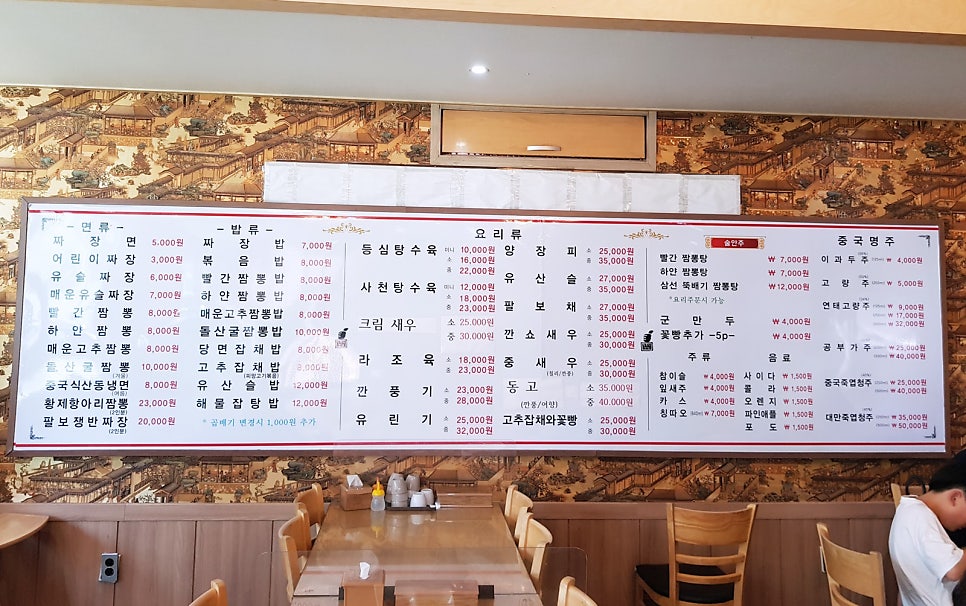 - 면 류 -
짜 장 면 5,000원
어린이짜장 3,000원
유 슬 짜 장 6,000원
매운유슬짜장 7,000원
빨 간 짬 뽕 8,000원
하 얀 짬 뽕 8,000원
매운고추짬뽕 8,000원
돌산굴짬뽕 10,000원
(겨울)
중국식산동냉면 8,000원
(여름)
황제항아리짬뽕 23,000원
(2인분)
팔보쟁반짜장 20,000원
(2인분)
- 밥 류 -
짜 장 밥 7,000원
볶 음 밥 8,000원
빨간짬뽕밥 8,000원
하얀짬뽕밥 8,000원
매운고추짬뽕밥 8,000원
돌산굴짬뽕밥 10,000원
당면잡채밥 8,000원
고추잡채밥 8,000원
(피망고기볶음)
유 산 슬 밥 12,000원
해물잡탕밥 12,000원
* 곱배기 변경시 1,000원 추가
요 리 류
등심탕수육 미니 10,000원
소 16,000원
중 22,000원
사천탕수육 미니 12,000원
소 18,000원
중 23,000원
크림 새우 소 25,000원
중 30,000원
라 조 육 소 18,000원
중 23,000원
깐 풍 기 소 23,000원
중 28,000원
유 린 기 소 25,000원
중 32,000원
양 장 피 소 25,000원
중 35,000원
유 산 슬 소 27,000원
중 35,000원
팔 보 채 소 27,000원
중 35,000원
깐 쇼 새 우 소 25,000원
중 30,000원
중 새 우 소 25,000원
(칠리/깐풍) 중 30,000원
동 고 소 35,000원
(깐풍/어향) 중 40,000원
고추잡채와꽃빵 소 25,000원
중 30,000원
술안주
빨간 짬뽕탕 ₩ 7,000원
하얀 짬뽕탕 ₩ 7,000원
삼선 뚝배기 짬뽕탕 ₩12,000원
*요리주문시 가능
군 만 두 ₩4,000원
꽃빵추가 -5p- ₩4,000원
주 류
참이슬 ₩4,000원
잎새주 ₩4,000원
카 스 ₩4,000원
칭따오 (640ml) ₩7,000원
음 료
사 이 다 ₩1,500원
콜 라 ₩1,500원
오 렌 지 ₩1,500원
파인애플 ₩1,500원
포 도 ₩1,500원
중 국 명 주
이 과 두 주 ₩ 4,000원
고 량 주 ₩ 5,000원
연태고량주 ₩ 9,000원
₩ 17,000원
₩ 32,000원
공 부 가 주 ₩25,000원
₩40,000원
중국죽엽청주 ₩25,000원
₩40,000원
대만죽엽청주 ₩35,000원
₩50,000원